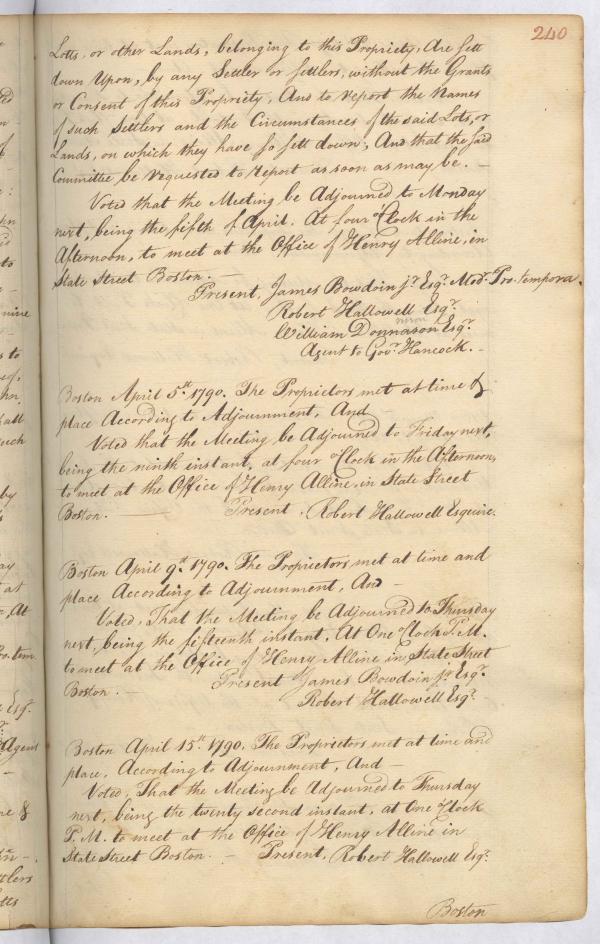 240
Lotts, or other Lands, belonging to this Propriety, Are sett
down Upon, by any Settler or Settlers, without the Grants
or Consent of this Propriety, And to report the Names
of such Settlers and the Circumstances of the said Lots, or
Lands, on which they have so sett down; And that the said
Committee be requested to report as soon as may be. —
Voted that the Meeting be Adjourned to Monday
next, being the fifth of April. At four oClock in the
Afternoon, to meet at the Office of Henry Alline, in
State Street Boston. —
Present, James Bowdoin jr. Esqr. Modr. Pro. tempora.
Robert Hallowell Esqr.
William Donnason Esqr.
Agent to Govr. Hancock. —
Boston April 5th. 1790. The Proprietors met at time &
place According to Adjournment, And
Voted that the Meeting be Adjourned to Friday next,
being the ninth instant, at four oClock in the Afternoon,
to meet at the Office of Henry Alline, in State Street
Boston. — Present, Robert Hallowell Esquire.
Boston April 9th. 1790. The Proprietors met at time and
place According to Adjournment, And —
Voted, That the Meeting be Adjourned to Thursday
next, being the fifteenth instant, At One Clock P.M.
to meet at the Office of Henry Alline in State Street
Boston. — Present James Bowdoin jr Esqr.
Robert Hallowell Esqr.
Boston April 15th. 1790. The Proprietors met at time and
place, According to Adjournment, And —
Voted, That the Meeting be Adjourned to Thursday
next, being the twenty second instant, at One Clock
P.M. to meet at the Office of Henry Alline in
State Street Boston. — Present, Robert Hallowell Esqr.
Boston